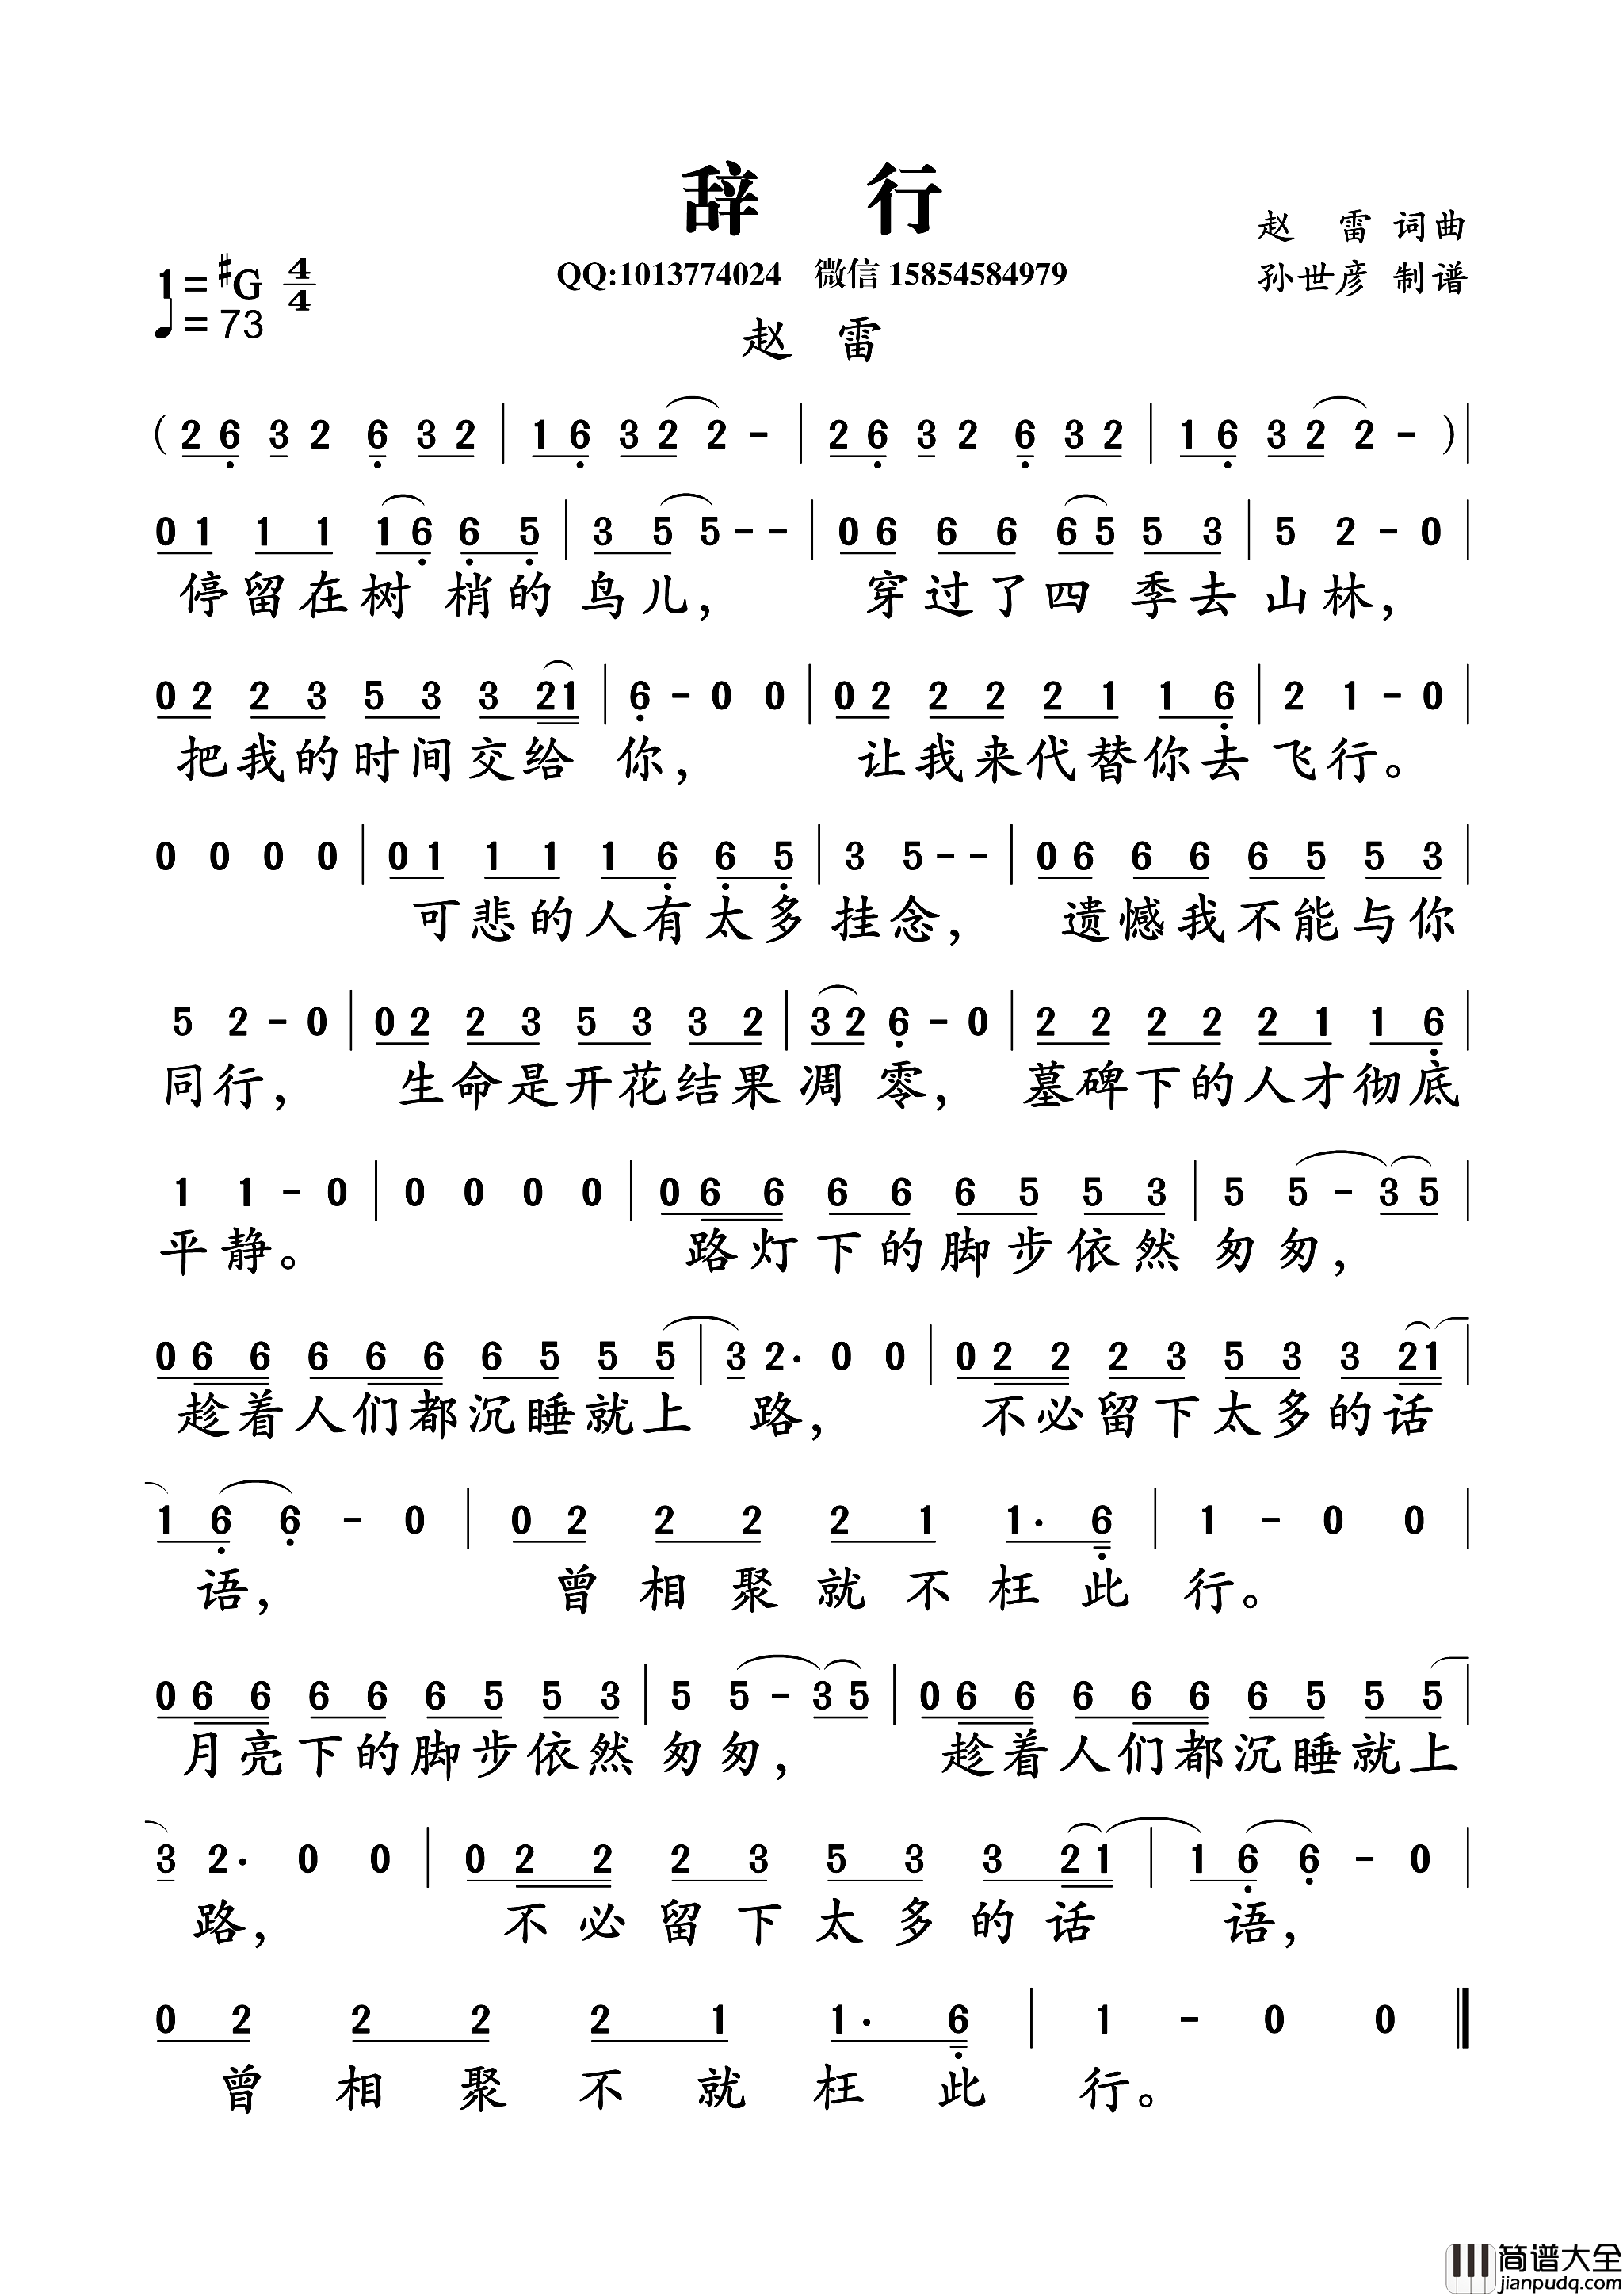 辞 行
赵 雷 词曲
QQ:1013774024 微信 15854584979
孙世彦 制谱
1=#G 4/4
♩=73
赵 雷
( 2 6̣ 3 2 6̣ 3 2 | 1 6̣ 3 2 2 - | 2 6̣ 3 2 6̣ 3 2 | 1 6̣ 3 2 2 - ) |
0 1 1 1 1 6̣ 6̣ 5̣ | 3 5 5 - - | 0 6 6 6 6 5 5 3 | 5 2 - 0 |
停留在树 梢的 鸟儿, 穿过了四 季去 山林,
0 2 2 3 5 3 3 2 1 | 6̣ - 0 0 | 0 2 2 2 2 1 1 6̣ | 2 1 - 0 |
把我的时间交给 你, 让我来代替你去 飞行。
0 0 0 0 | 0 1 1 1 1 6̣ 6̣ 5̣ | 3 5 - - | 0 6 6 6 6 5 5 3 |
可悲的人有太多 挂念, 遗憾我不能与你
5 2 - 0 | 0 2 2 3 5 3 3 2 | 3 2 6̣ - 0 | 2 2 2 2 2 1 1 6̣ |
同行, 生命是开花结果 凋 零, 墓碑下的人才彻底
1 1 - 0 | 0 0 0 0 | 0 6 6 6 6 6 5 5 3 | 5 5 - 3 5 |
平静。 路灯下的脚步依然 匆匆,
0 6 6 6 6 6 6 5 5 5 | 3 2· 0 0 | 0 2 2 2 3 5 3 3 2 1 |
趁着人们都沉睡就上 路, 不必留下太多的话
1 6̣ 6̣ - 0 | 0 2 2 2 2 1 1· 6̣ | 1 - 0 0 |
语, 曾相聚就不枉此 行。
0 6 6 6 6 6 5 5 3 | 5 5 - 3 5 | 0 6 6 6 6 6 6 5 5 5 |
月亮下的脚步依然 匆匆, 趁着人们都沉睡就上
3 2· 0 0 | 0 2 2 2 3 5 3 3 2 1 | 1 6̣ 6̣ - 0 |
路, 不必留下太多的话 语,
0 2 2 2 2 1 1· 6̣ | 1 - 0 0 ‖
曾相聚不就枉此 行。
简谱大全
jianpudq.com